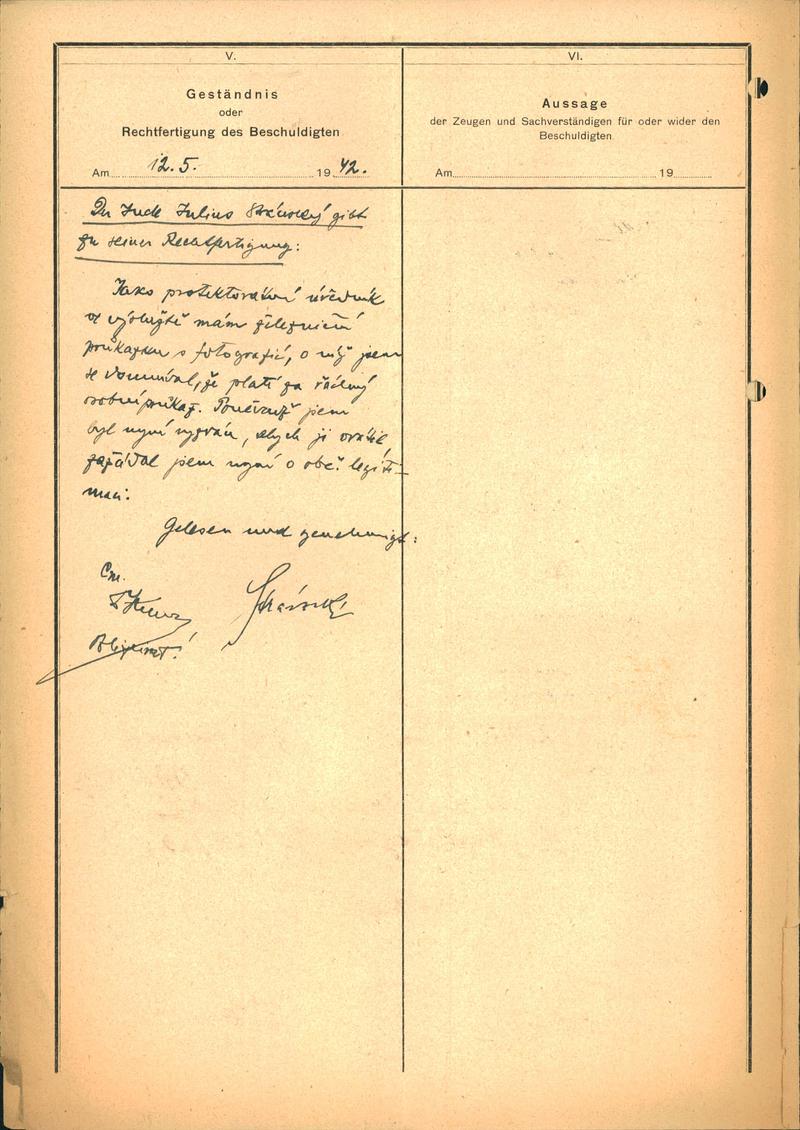 V.
Geständnis
oder
Rechtfertigung des Beschuldigten
Am 12. 5. 1942.
Der Jude Julius Stránský gibt
zu seiner Rechtfertigung:
Jako protektorátní úředník
ve výslužbě mám železniční
průkazku s fotografií, o níž jsem
se domníval, že platí za řádný
osobní průkaz. Poněvadž jsem
byl nyní vyzván, abych ji vrátil
zažádal jsem nyní o obč. legiti-
maci.
Gelesen und genehmigt:
Stránský
VI.
Aussage
der Zeugen und Sachverständigen für oder wider den
Beschuldigten.
Am 19